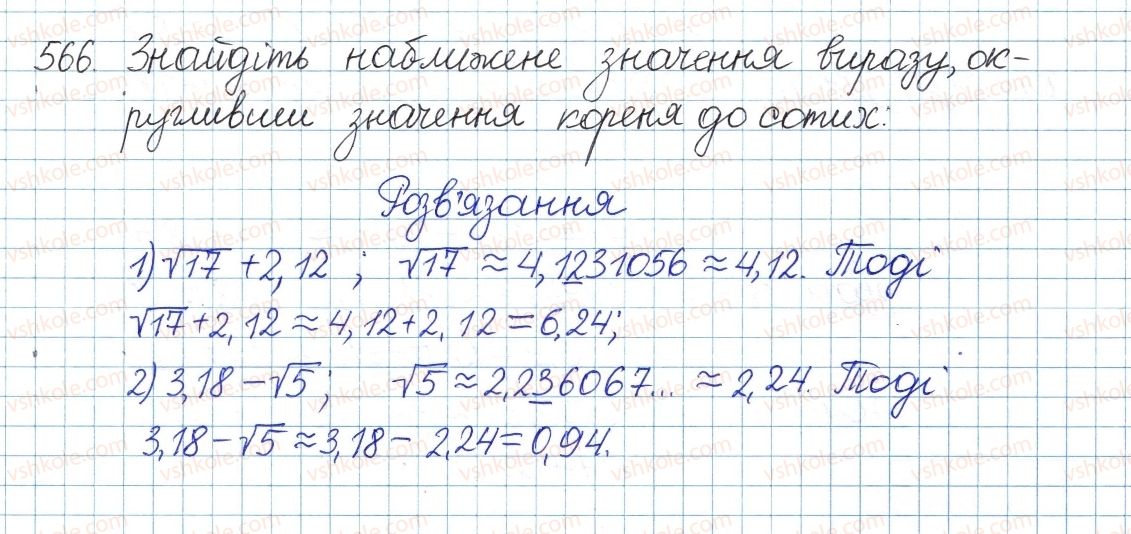 566. Знайдіть наближене значення виразу, ок-
ругливши значення кореня до сотих:
Розв'язання
1) √17 + 2,12 ; √17 ≈ 4,1231056 ≈ 4,12. Тоді
√17 + 2,12 ≈ 4,12 + 2,12 = 6,24;
2) 3,18 − √5 ; √5 ≈ 2,236067... ≈ 2,24. Тоді
3,18 − √5 ≈ 3,18 − 2,24 = 0,94.